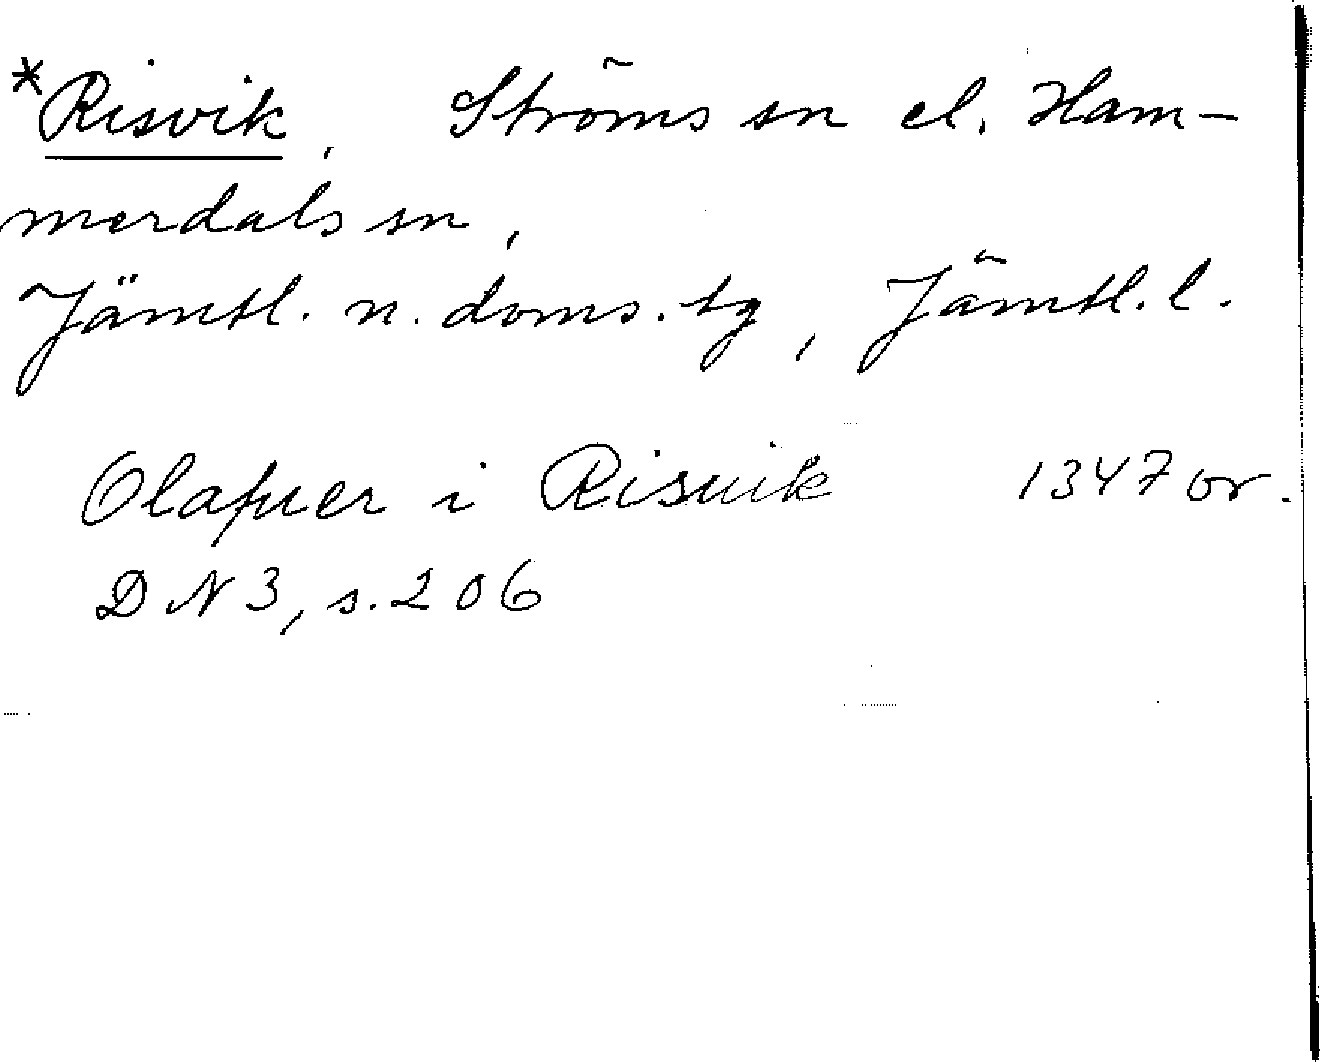 *Risvik, Ströms sn el. Ham-
merdals sn,
Jämtl. n. doms. tg, Jämtl. l.
Olafuer i Risuik 1347 or.
DN 3, s. 206